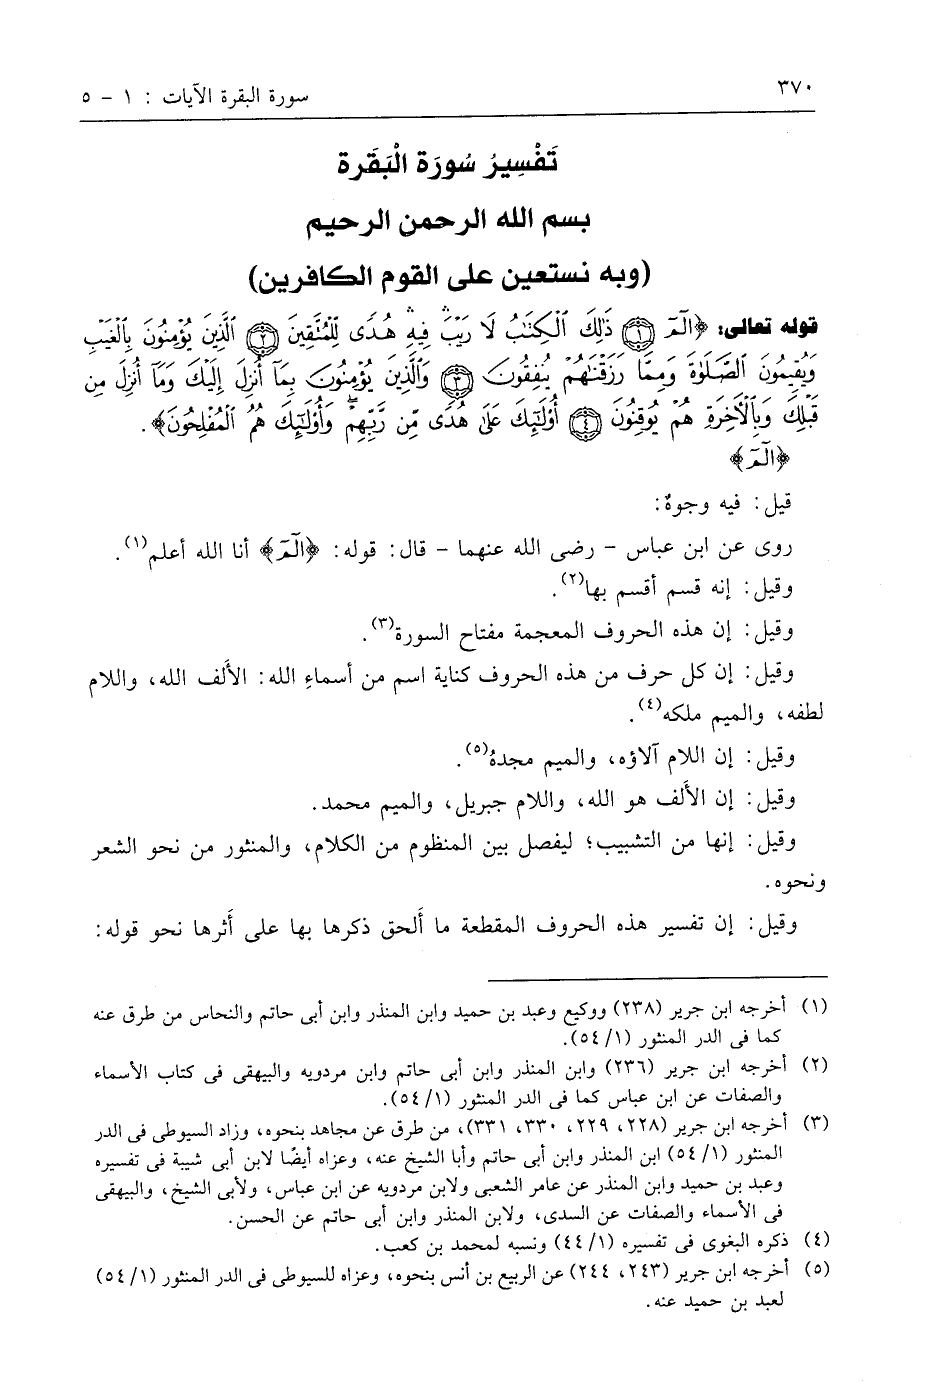 ٣٧٠
سورة البقرة الآيات : ١ - ٥
تَفْسِيرُ سُورَة الْبَقَرة
بسم الله الرحمن الرحيم
(وبه نستعين على القوم الكافرين)
قوله تعالى: ﴿الٓمٓ ۝١ ذَٰلِكَ ٱلْكِتَٰبُ لَا رَيْبَ ۛ فِيهِ ۛ هُدًى لِّلْمُتَّقِينَ ۝٢ ٱلَّذِينَ يُؤْمِنُونَ بِٱلْغَيْبِ
وَيُقِيمُونَ ٱلصَّلَوٰةَ وَمِمَّا رَزَقْنَٰهُمْ يُنفِقُونَ ۝٣ وَٱلَّذِينَ يُؤْمِنُونَ بِمَآ أُنزِلَ إِلَيْكَ وَمَآ أُنزِلَ مِن
قَبْلِكَ وَبِٱلْأَخِرَةِ هُمْ يُوقِنُونَ ۝٤ أُوْلَٰٓئِكَ عَلَىٰ هُدًى مِّن رَّبِّهِمْ ۖ وَأُوْلَٰٓئِكَ هُمُ ٱلْمُفْلِحُونَ﴾.
﴿الٓمٓ﴾
قيل: فيه وجوهٌ:
روى عن ابن عباس - رضى الله عنهما - قال: قوله: ﴿الٓمٓ﴾ أنا الله أعلم(١).
وقيل: إنه قسم أقسم بها(٢).
وقيل: إن هذه الحروف المعجمة مفتاح السورة(٣).
وقيل: إن كل حرف من هذه الحروف كناية اسم من أسماءِ الله: الأَلف الله، واللام
لطفه، والميم ملكه(٤).
وقيل: إن اللام آلاؤه، والميم مجدهُ(٥).
وقيل: إن الأَلف هو الله، واللام جبريل، والميم محمد.
وقيل: إنها من التشبيب؛ ليفصل بين المنظوم من الكلام، والمنثور من نحو الشعر
ونحوه.
وقيل: إن تفسير هذه الحروف المقطعة ما أَلحق ذكرها بها على أَثرها نحو قوله:
(١) أخرجه ابن جرير (٢٣٨) ووكيع وعبد بن حميد وابن المنذر وابن أبى حاتم والنحاس من طرق عنه
كما فى الدر المنثور (١/ ٥٤).
(٢) أخرجه ابن جرير (٢٣٦) وابن المنذر وابن أبى حاتم وابن مردويه والبيهقى فى كتاب الأسماء
والصفات عن ابن عباس كما فى الدر المنثور (١/ ٥٤).
(٣) أخرجه ابن جرير (٢٢٨، ٢٢٩، ٣٣٠، ٣٣١)، من طرق عن مجاهد بنحوه، وزاد السيوطى فى الدر
المنثور (١/ ٥٤) ابن المنذر وابن أبى حاتم وأبا الشيخ عنه، وعزاه أيضًا لابن أبى شيبة فى تفسيره
وعبد بن حميد وابن المنذر عن عامر الشعبى ولابن مردويه عن ابن عباس، ولأبى الشيخ، والبيهقى
فى الأسماء والصفات عن السدى، ولابن المنذر وابن أبى حاتم عن الحسن.
(٤) ذكره البغوى فى تفسيره (١/ ٤٤) ونسبه لمحمد بن كعب.
(٥) أخرجه ابن جرير (٢٤٣، ٢٤٤) عن الربيع بن أنس بنحوه، وعزاه للسيوطى فى الدر المنثور (١/ ٥٤)
لعبد بن حميد عنه.